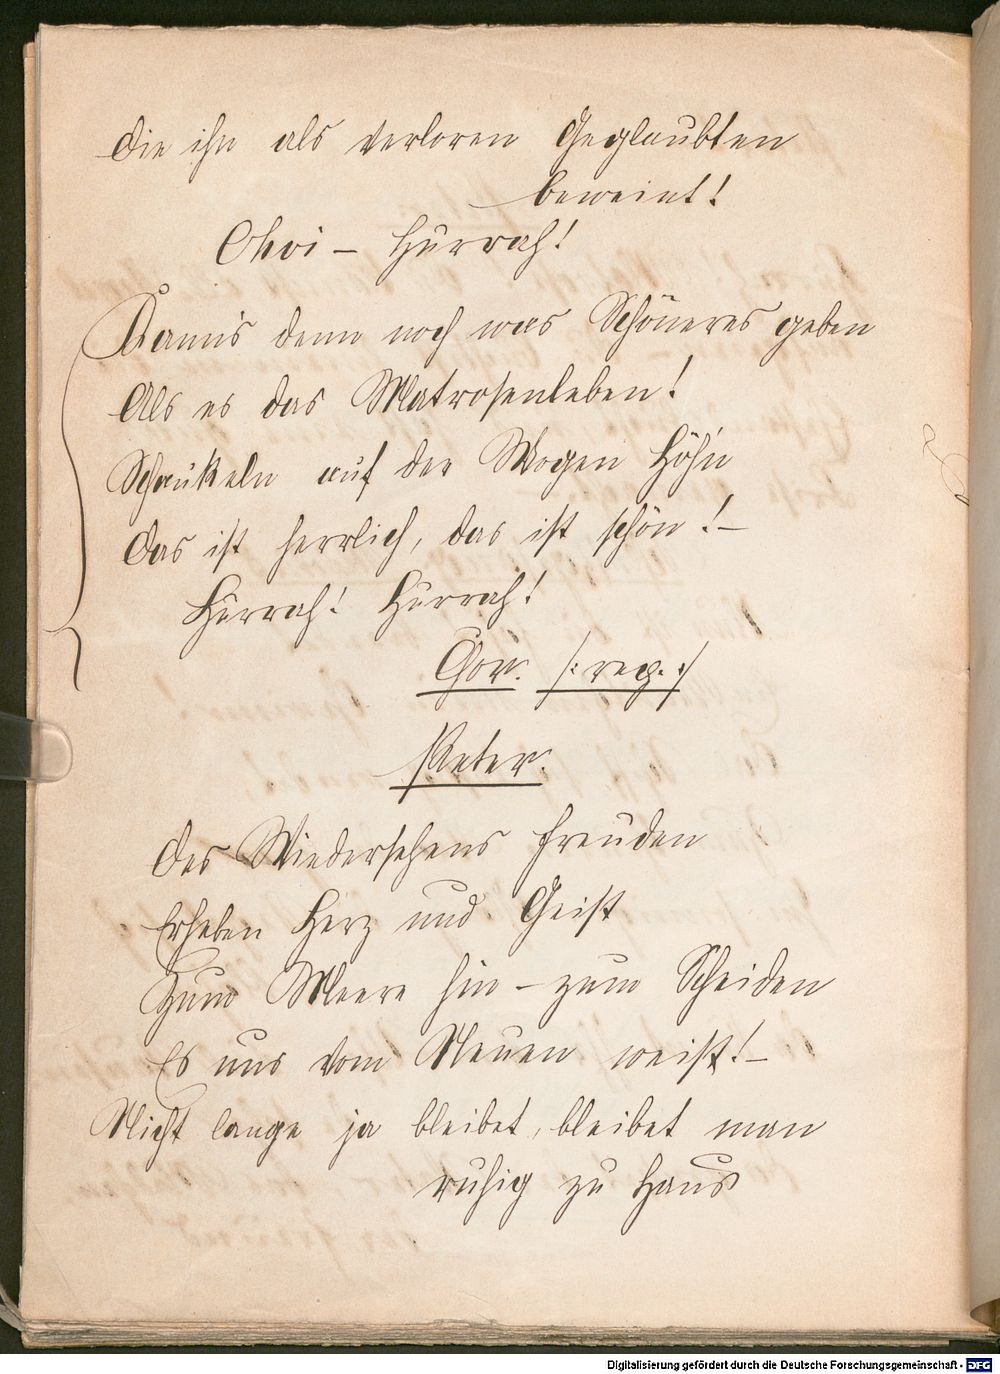 Die ihn als verloren Geglaubten
beweint!
Ohoi – Hurrah!
Kann's denn noch was Schöneres geben
Als es das Matrosenleben!
Schaukeln auf der Wogen Höh'n
Das ist herrlich, das ist schön! –
Hurrah! Hurrah!
Chor. /: rep. :/
Peter.
Des Wiedersehens Freuden
Erheben Herz und Geist
Zum Meere hin – zum Scheiden
Es uns vom Neuen weist! –
Nicht lange ja bleibet, bleibet man
ruhig zu Haus
Digitalisierung gefördert durch die Deutsche Forschungsgemeinschaft - DFG